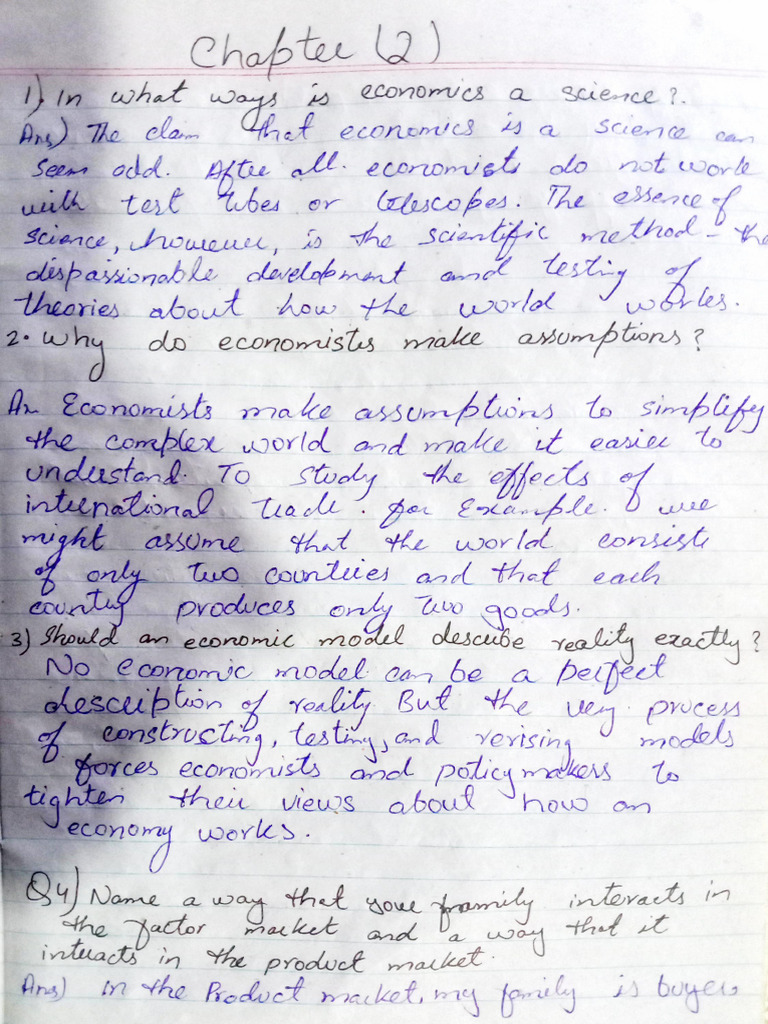 Chapter (2)
1) In what ways is economics a science?.
Ans) The claim that economics is a science can
seem odd. After all. economists do not work
with test tubes or telescopes. The essence of
science, however, is the scientific method - the
dispassionable development and testing of
theories about how the world works.
2. Why do economists make assumptions?
An Economists make assumptions to simplify
the complex world and make it easier to
understand. To study the effects of
international trade. for Example. we
might assume that the world consists
of only two countries and that each
country produces only two goods.
3) Should an economic model describe reality exactly?
No economic model can be a perfect
description of reality. But the very process
of constructing, testing, and revising models
forces economists and policymakers to
tighten their views about how an
economy works.
Q4) Name a way that your family interacts in
the factor market and a way that it
interacts in the product market.
Ans) In the Product market, my family is buyers